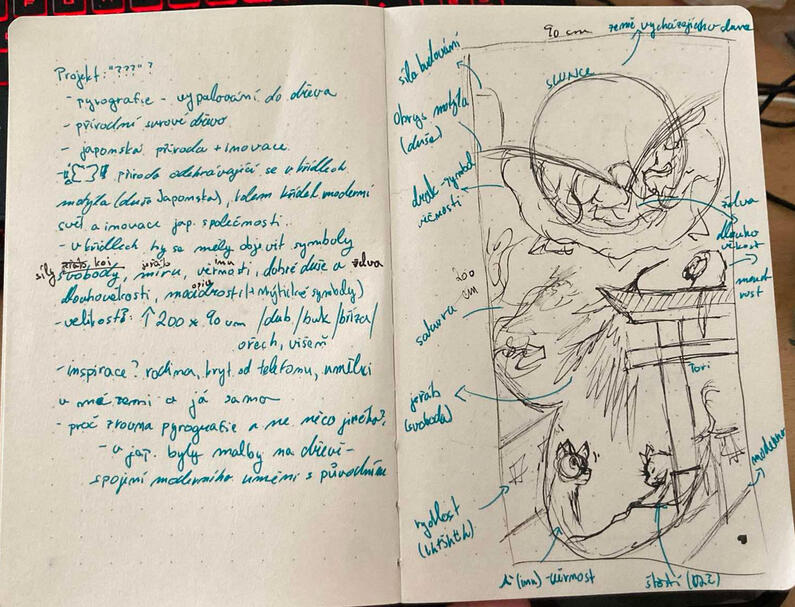 Projekt: "???" ?
- pyrografie - vypalování do dřeva
- přírodní surové dřevo
- japonská příroda + inovace
příroda odehrávající se v křídlech
motýla (duše Japonska), kolem křídel moderní
svět a inovace jap. společnosti.
- v křídlech by se měly objevit symboly
jeřáb, koi jeřáb inu
síly svobody, míru, věrnosti, dobré duše a želva
dlouhověkosti, moudrosti (+ mýtické symboly)
- velikost: ↑ 200 × 90 cm / dub / buk / bříza /
ořech, višeň
- inspirace? rodina, kryt od telefonu, umělci
v mé zemi a já samo
- proč zrovna pyrografie a ne něco jiného?
- v jap. byly malby na dřevě -
spojení moderního umění s původním
90 cm
země vycházejícího
síla
SLUNCE
Obrys motýla
(duše)
drak - symbol
věčnosti
želva
dlouho
věkost
moud
rost
200
cm
sakura
Tori
jeřáb
(svoboda)
rychlost
(inu) - věrnost
štěstí